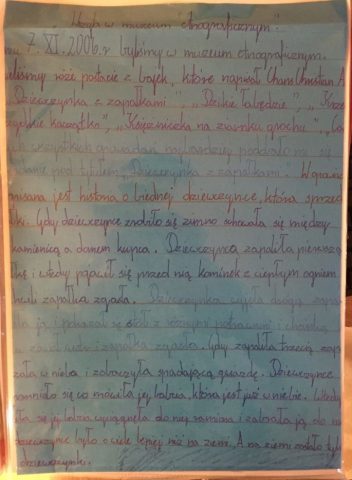 „Wizyta w muzeum etnograficznym"
7. XI. 2006.r. byliśmy w muzeum etnograficznym.
różne postacie z bajek, które napisał Chans Christian A
„Dziewczynka z zapałkami", „Dzikie łabędzie",
kaczątko", „Księżniczka na ziarnku grochu",
wszystkich opowiadań najbardziej podobało mi się
pod tytułem „Dziewczynka z zapałkami".
jest historia o biednej dziewczynce, która
Gdy dziewczynce zrobiło się zimno schowała się między
kamienicą a domem kupca. Dziewczynka zapaliła pierwszą
i wtedy pojawił się przed nią kominek z ciepłym ogniem
zapałka zgasła. Dziewczynka wyjęła drugą
ją i pokazał się stół z różnymi potrawami i choinką
i zapałka zgasła. Gdy zapaliła trzecią
w niebo i zobaczyła spadającą gwiazdę. Dziewczynce
się co mówiła jej babcia, która jest już w niebie. Wtedy
się jej babcia wyciągnęła do niej ramiona i zabrała ją do
dziewczynce było o wiele lepiej niż na ziemi. A na ziemi zostało
dziewczynki.